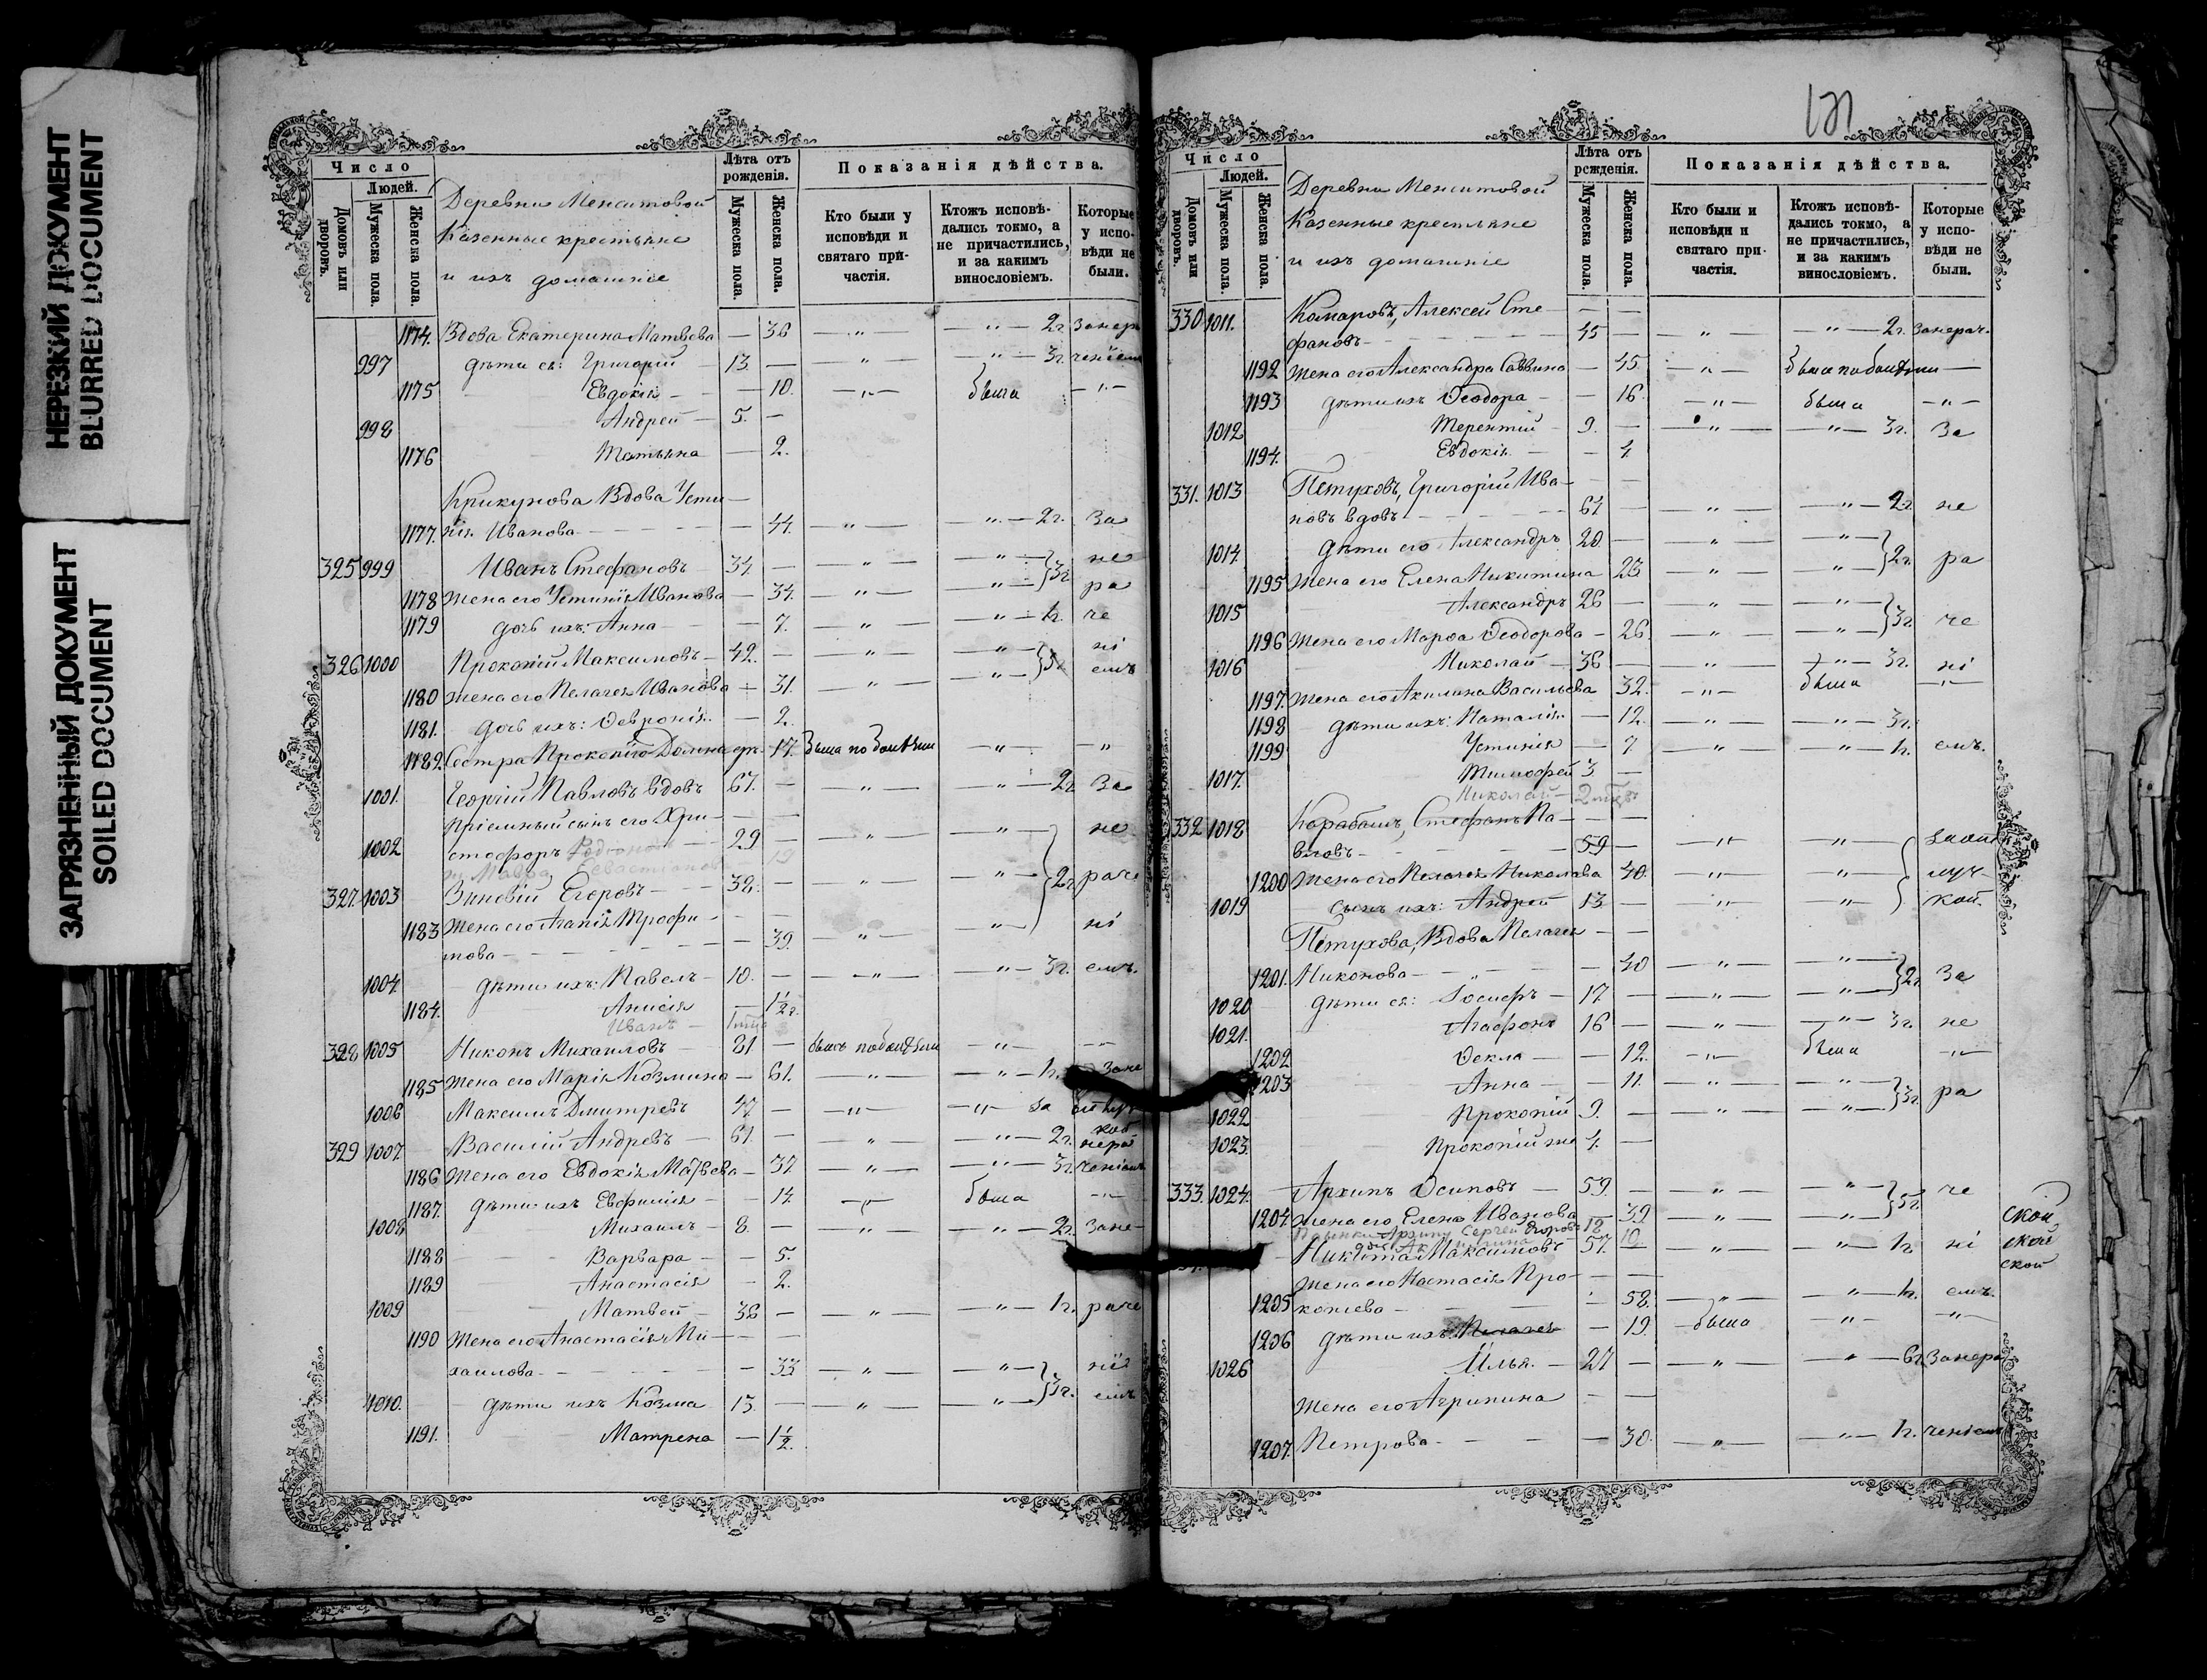 НЕРЕЗКИЙ ДОКУМЕНТ
BLURRED DOCUMENT
ЗАГРЯЗНЕННЫЙ ДОКУМЕНТ
SOILED DOCUMENT
Число
Людей.
Домовъ или дворовъ.
Мужеска пола.
Женска пола.
Деревни Менситовой
Казенные крестьяне
и ихъ домашніе
Лѣта отъ рожденія.
Мужеска пола.
Женска пола.
Показанія дѣйства.
Кто были у исповѣди и святаго причастія.
Ктожъ исповѣдались токмо, а не причастились, и за какимъ винословіемъ.
Которые у исповѣди не были.
1174. Вдова Екатерина Матвѣева — 36 — „ — — „ — 2г. Занера
997 дѣти ея: Григорій 13. — — „ — — „ — 3г. ченіем
1175 Евдокія — 10. — „ — была — „ —
998 Андрей 5. —
1176 Татьяна — 2.
Крикунова Вдова Усти—
1177. нія Иванова — 44. — „ — — „ — 2г. За
325 999 Иванъ Стефановъ 34. — — „ — — „ — не
1178 Жена его Устинія Иванова — 34. — „ — — „ — 3г. ра
1179 дочь ихъ: Анна — 7. — „ — — „ — 1г. че
326 1000 Прокопій Максимовъ 42. — — „ — — „ — ні
1180 Жена его Пелагея Иванова — 31. — „ — — „ — емъ
1181. дочь ихъ: Ѳевронія — 2.
1182. Сестра Прокопія Домна — 17. Была по болѣзни — „ — „
1001. Георгій Павловъ вдовъ 67. — — „ — — „ — 2г. За
Пріемный сынъ его Хри—
1002 стофоръ 29 — — „ — — „ — не
327. 1003 Зиновій Егоровъ 38. — — „ — — „ — 2г. раче
1183 Жена его Агапія Трофи—
мова — 39. — „ — — „ — ні
1004 дѣти ихъ: Павелъ 10. — — „ — — „ — 3г. емъ.
1184. Анисія — 1½ г.
Иванъ
328 1005 Никонъ Михаиловъ 81 — былъ по болѣзни — „ — — „ —
1185 Жена его Марія Козмина — 61. — „ — — „ — 1г. Зане
1006 Максимъ Дмитревъ 47 — — „ — — „ — за
329 1007. Василій Андревъ 61. — — „ — — „ — 2г. нера
1186 Жена его Евдокія Матвѣева — 37 — „ — — „ — 3г. ченіем
1187. дѣти ихъ Евфимія — 14. — „ — была — „ —
1008 Михаилъ 8. — — „ — — „ — 2г. Зане-
1188 Варвара — 5.
1189 Анастасія — 2.
1009 Матвей 38 — — „ — — „ — 1г. раче
1190 Жена его Анастасія Ми—
хаилова — 33 — „ — — „ — нія
1010. дѣти ихъ Козма 15. — — „ — — „ — 3г. емъ
1191. Матрена — 1½.
121
Число
Людей.
Домовъ или дворовъ.
Мужеска пола.
Женска пола.
Деревни Менситовой
Казенные крестьяне
и ихъ домашніе
Лѣта отъ рожденія.
Мужеска пола.
Женска пола.
Показанія дѣйства.
Кто были и исповѣди и святаго причастія.
Ктожъ исповѣдались токмо, а не причастились, и за какимъ винословіемъ.
Которые у исповѣди не были.
330 1011. Комаровъ, Алексей Сте—
фановъ 45 — — „ — — „ — 2г. Занерач.
1192 Жена его Александра Саввина — 45. — „ — была по болѣзни —
1193 дѣти ихъ Ѳеодора — 16. — „ — была — „ —
1012 Терентій 9. — — „ — — „ — 3г. За
1194. Евдокія — 4
331. 1013 Петуховъ, Григорій Ива—
новъ вдовъ 61. — — „ — — „ — 2г. не
1014. дѣти его Александръ 20 — — „ — — „ —
1195 Жена его Елена Никитина 23 — „ — — „ — 2г. ра
1015 Александръ 26 — — „ — — „ —
1196 Жена его Марѳа Ѳеодорова — 26. — „ — — „ — 3г. че
1016 Николай 36 — — „ — — „ — 3г. ні
1197. Жена его Акилина Васильева 32. — „ — была — „ —
1198 дѣти ихъ: Наталія — 12. — „ — — „ — 3г.
1199 Устинія — 7 — „ — — „ — 1г. емъ.
1017. Тимофей 3 —
Николай
332 1018 Карабашъ, Стефанъ Па—
вловъ 59 — — „ — — „ —
1200 Жена его Пелагея Николаева 40. — „ — — „ —
1019 Сынъ ихъ: Андрей 13 — — „ — — „ — кой.
Петухова, Вдова Пелагея — —
1201. Никонова — 40 — „ — — „ —
1020 дѣти ея: Іосифъ 17 — — „ — — „ — 2г. За
1021. Агафонъ 16 — — „ — — „ — 3г. не
1202 Ѳекла — 12. — „ — была — „ —
1203 Анна — 11. — „ — — „ —
1022 Прокопій 9. — — „ — — „ — 3г. ра
1023. Прокопій же 4. —
333. 1024. Архипъ Осиповъ 59. — — „ — — „ — че
1204. Жена его Елена Иванова — 39 — „ — — „ — 5г. ской
Никита Максимовъ 57. — — „ — — „ — 1г. ні ской
ской
Жена его Настасія Про—
1205 копіева — 58. — „ — — „ — 1г. емъ.
1206 дѣти ихъ: Пелагея — 19. была — „ — „ —
1026 Илья. 27 — — „ — — „ — 6г. Занера
Жена его Агрипина — —
1207. Петрова — 30. — „ — — „ — 1г. ченіем